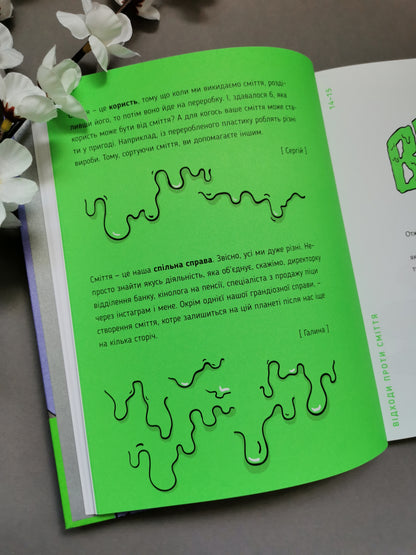 – це користь, тому що коли ми викидаємо сміття, розді-
ливши його, то потім воно йде на переробку. І, здавалося б, яка
користь може бути від сміття? А для когось ваше сміття може ста-
ти у пригоді. Наприклад, із переробленого пластику роблять різні
вироби. Тому, сортуючи сміття, ви допомагаєте іншим.
[ Сергій ]
Сміття – це наша спільна справа. Звісно, усі ми дуже різні. Не-
просто знайти якусь діяльність, яка об'єднує, скажімо, директорку
відділення банку, кінолога на пенсії, спеціаліста з продажу піци
через інстаграм і мене. Окрім однієї нашої грандіозної справи, –
створення сміття, котре залишиться на цій планеті після нас іще
на кілька сторіч.
[ Галина ]
14–15
ВІДХОДИ ПРОТИ СМІТТЯ